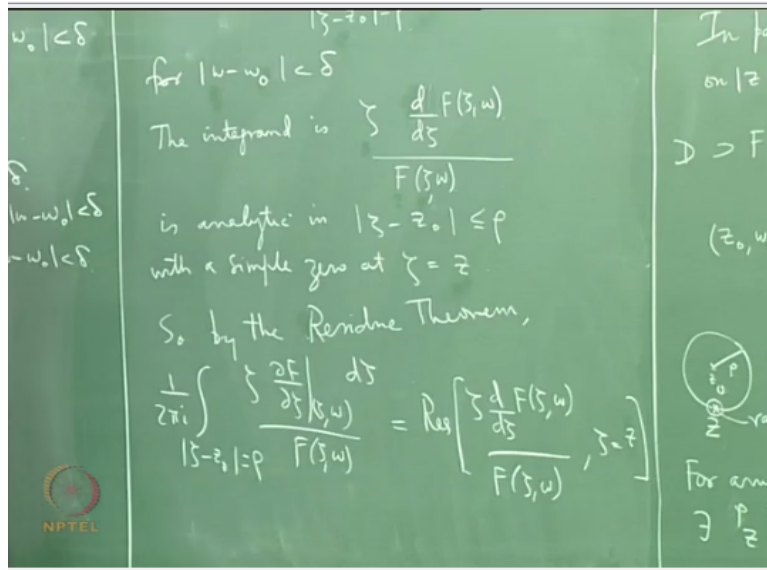 w₀|<δ
δ.
|w-w₀|<δ
-w₀|<δ.
|ζ-z₀|=ρ
for |w-w₀|<δ
The integrand is ζ d/dζ F(ζ,w) / F(ζ,w)
is analytic in |ζ-z₀| ≤ ρ
with a simple zero at ζ = z
So by the Residue Theorem,
1/2πi ∫_{|ζ-z₀|=ρ} ζ ∂F/∂ζ|(ζ,w) dζ / F(ζ,w) = Res[ ζ d/dζ F(ζ,w) / F(ζ,w) , ζ=z ]
In
on |z
D ⊃ F
(z₀, w
z₀ ρ
z
For
∃ ρ
z
NPTEL